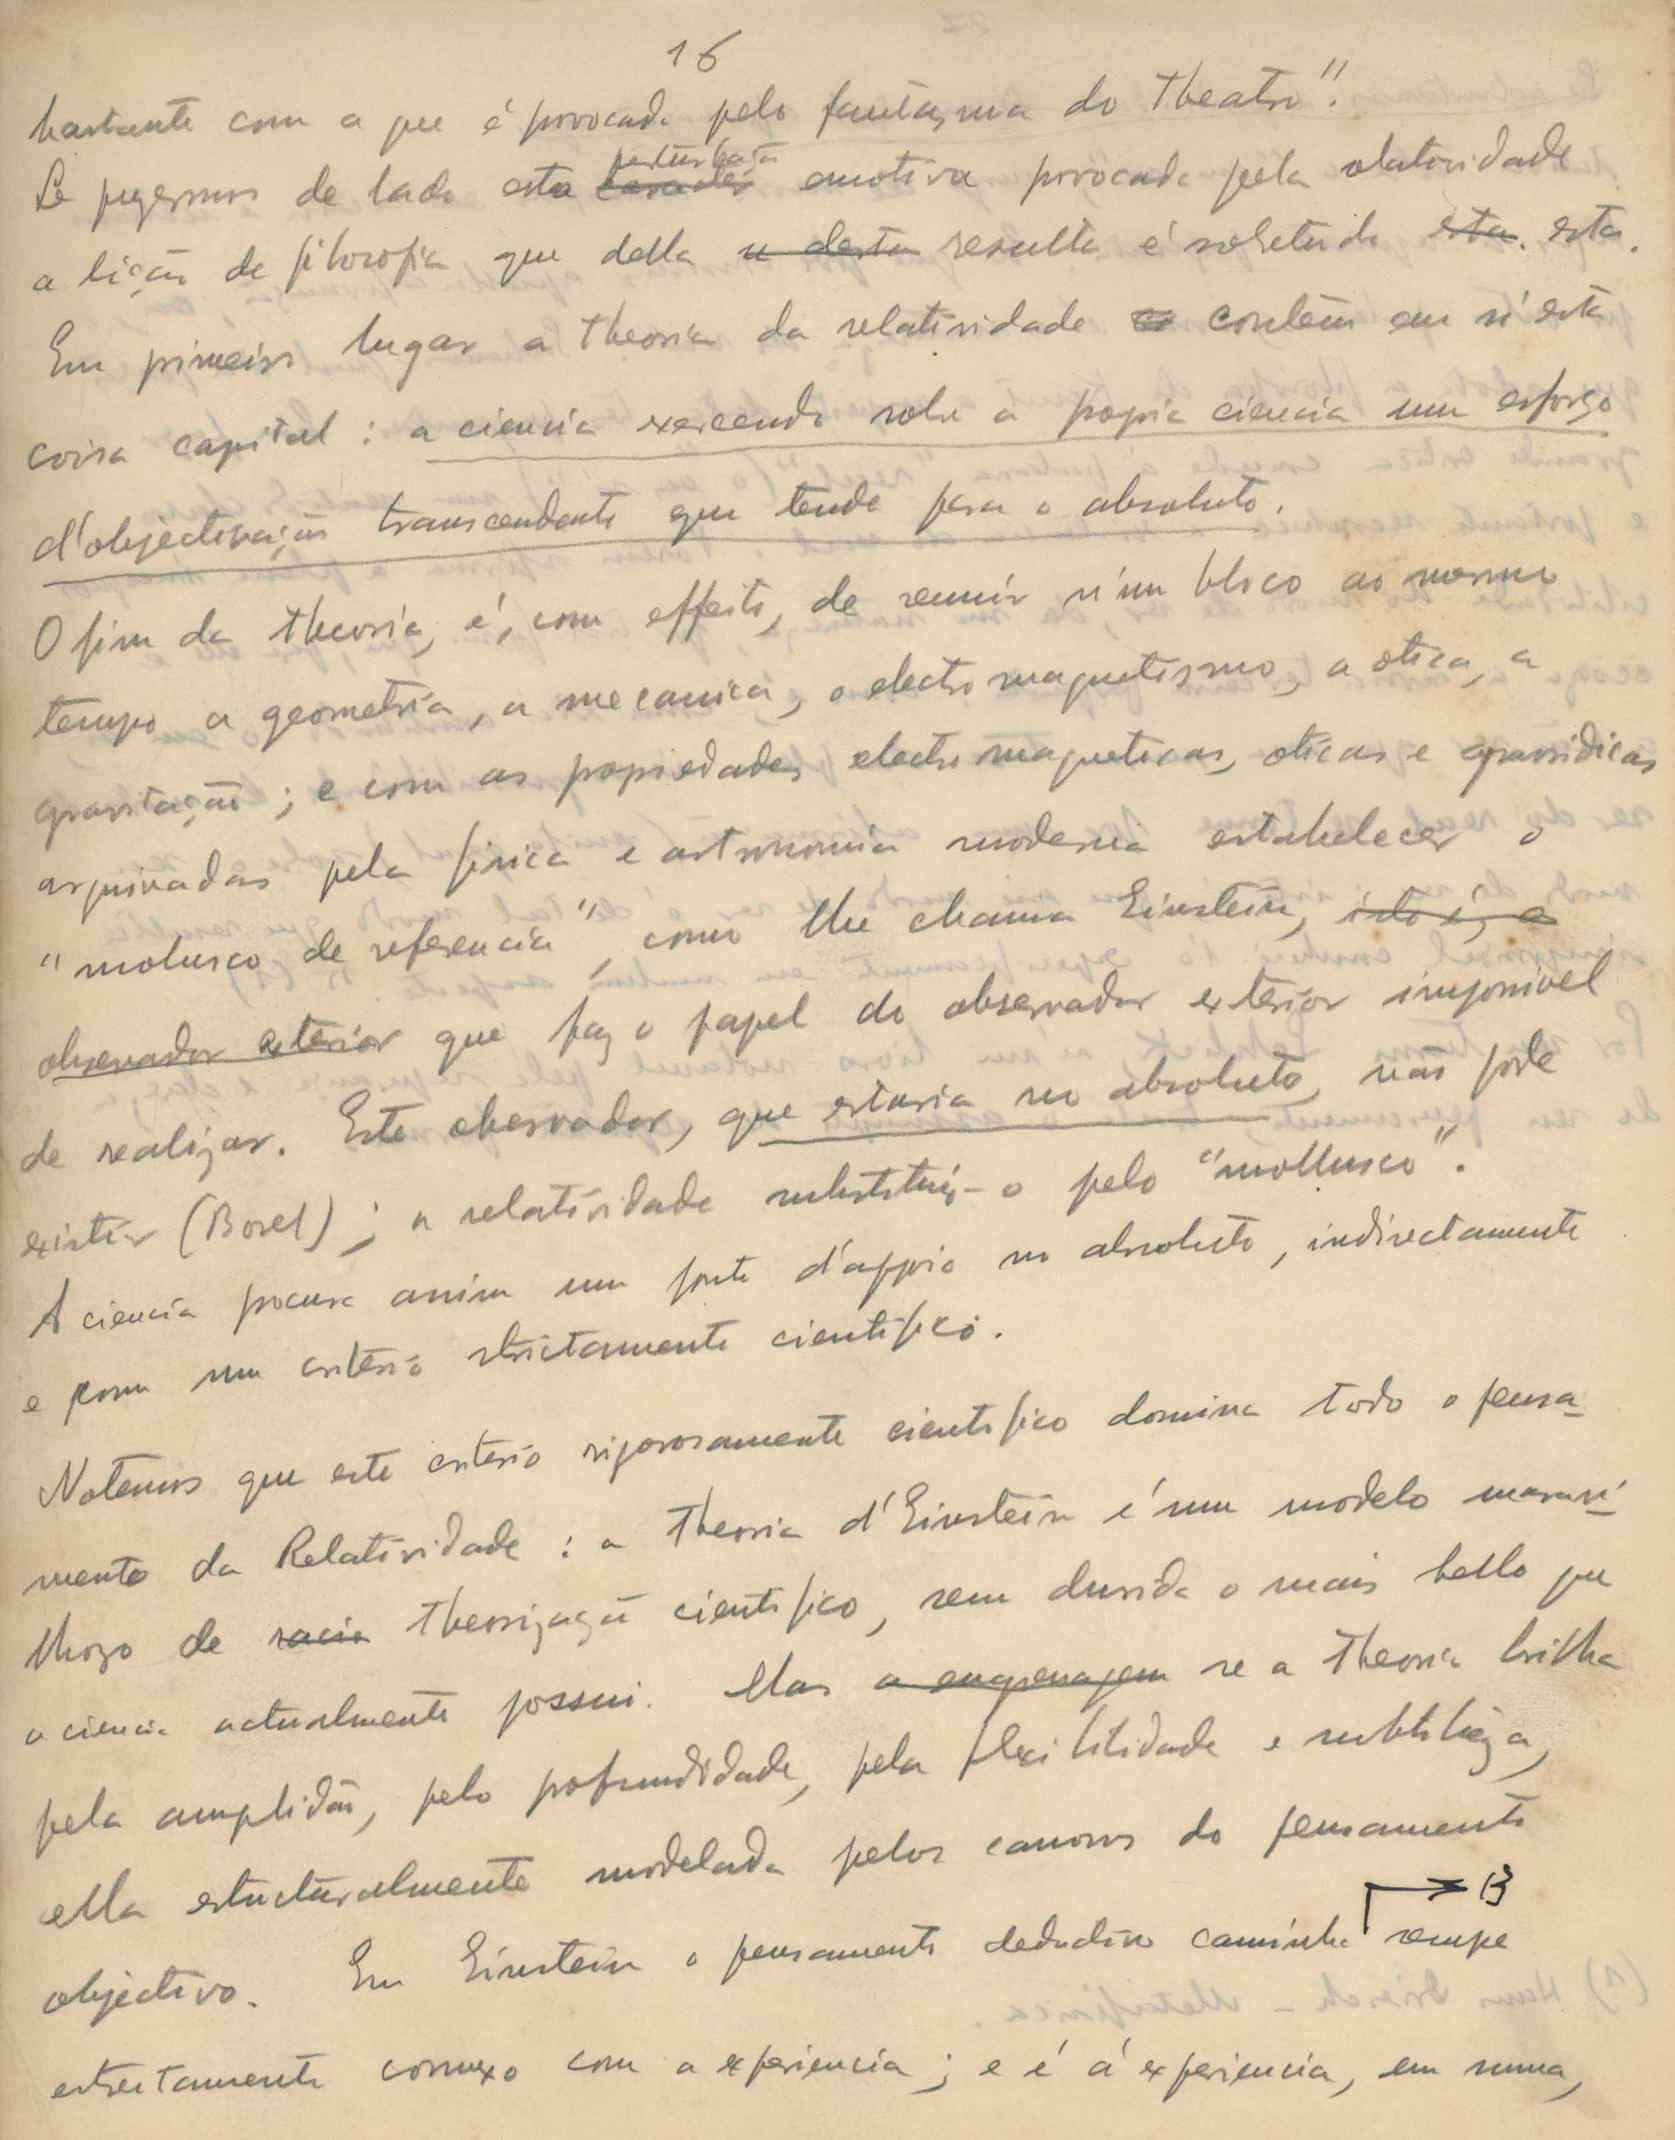 16
bastante com a que é provocada pelo fantasma do theatro".
Se pozermos de lado esta perturbação emotiva provocada pela relatividade
a lição de filosofia que della resulta é sobretudo esta.
Em primeiro lugar a theoria da relatividade contêm em si esta
coisa capital: a ciencia exercendo sobre a propria ciencia um esforço
d'objectivação transcendente que tende para o absoluto.
O fim da theoria, é, com effeito, de reunir n'um bloco ao mesmo
tempo a geometria, a mecanica, o electromagnetismo, a otica, a
gravitação; e com as propriedades electromagneticas, oticas e gravidicas
arquivadas pela fisica e astronomia moderna estabelecer o
"molusco de referencia", como lhe chama Einstein, isto é, o
observador exterior que faz o papel do observador exterior impossivel
de realizar. Este observador, que estaria no absoluto, não pode
existir (Borel); a relatividade substitui-o pelo "mollusco".
A ciencia procura assim um ponto d'appoio no absoluto, indirectamente
e com um criterio strictamente cientifico.
Notemos que este criterio rigorosamente cientifico domina todo o pensa-
mento da Relatividade: a theoria d'Einstein é um modelo maravi-
lhozo de theorização cientifico, sem duvida o mais bello que
a ciencia actualmente possui. Mas a engrenagem se a theoria brilha
pela amplidão, pelo profundidade, pela flexibilidade e subtileza,
ella estructuralmente modelada pelos canones do pensamento
objectivo. Em Einstein o pensamento dedutivo caminha → B sempre
estreitamente connexo com a experiencia; e é á experiencia, em suma,